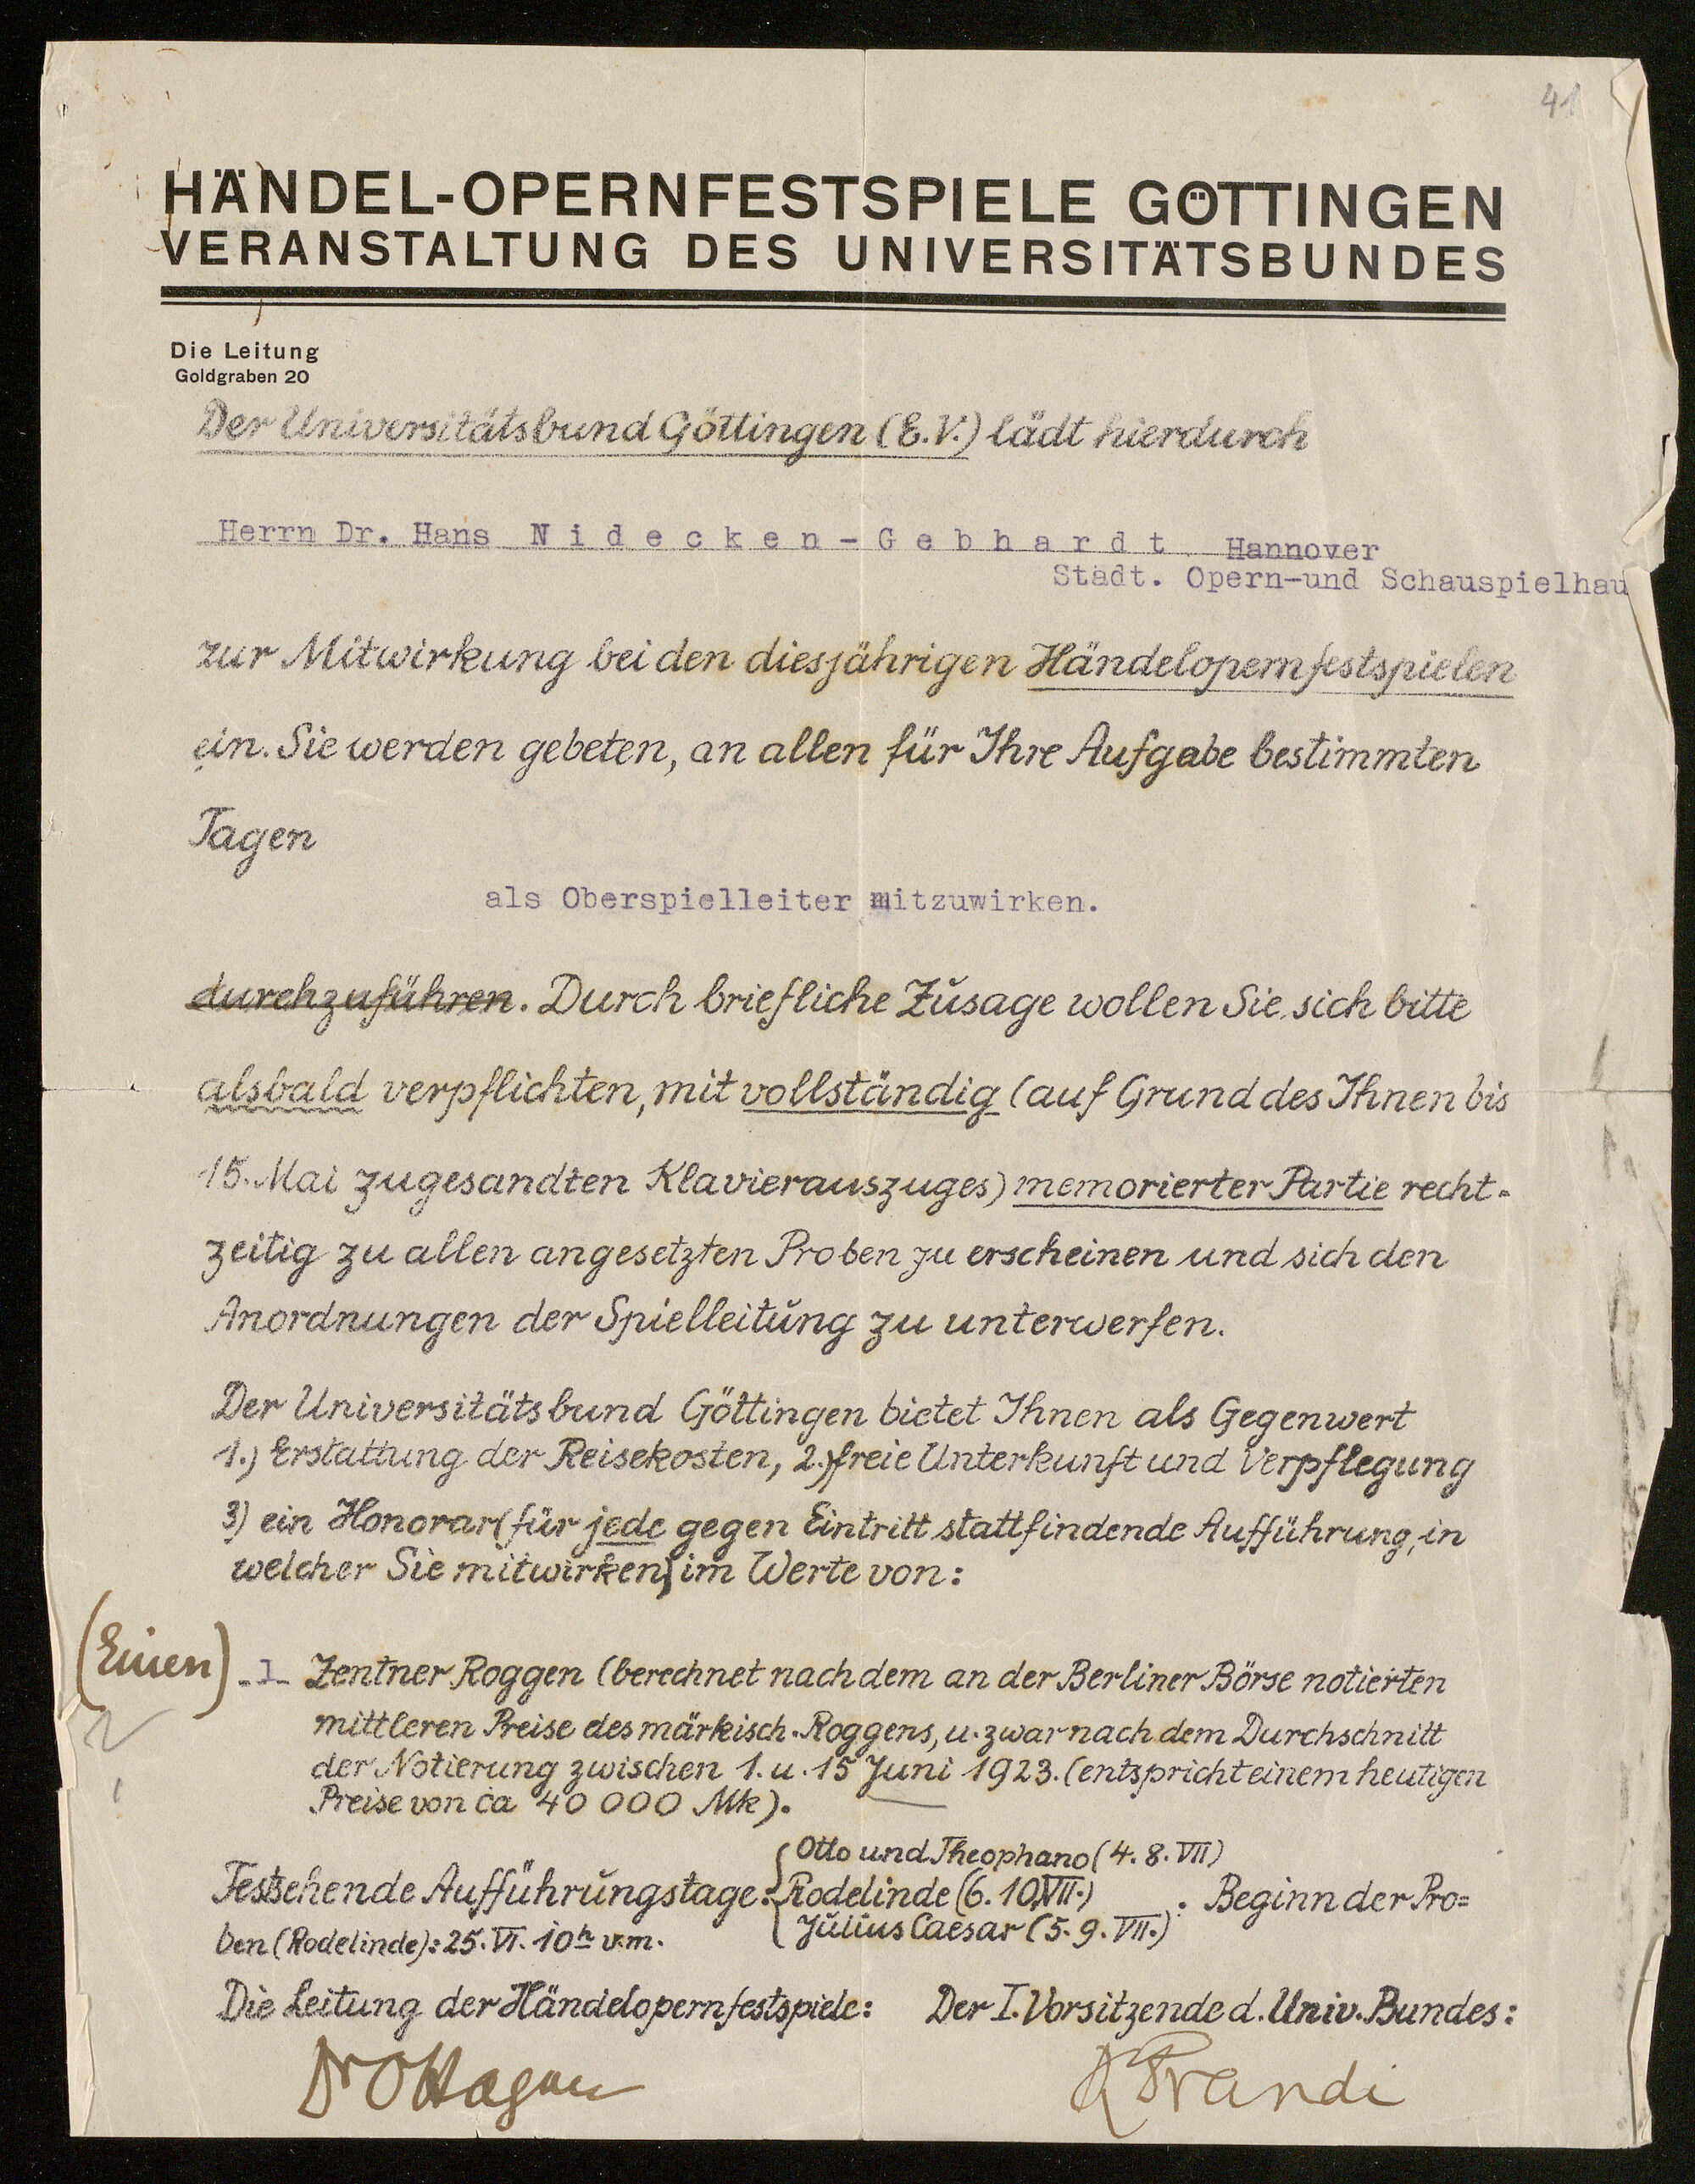 41
HÄNDEL-OPERNFESTSPIELE GÖTTINGEN
VERANSTALTUNG DES UNIVERSITÄTSBUNDES
Die Leitung
Goldgraben 20
Der Universitätsbund Göttingen (E.V.) lädt hierdurch
Herrn Dr. Hans N i d e c k e n - G e b h a r d t Hannover
Städt. Opern-und Schauspielhau
zur Mitwirkung bei den diesjährigen Händelopernfestspielen
ein. Sie werden gebeten, an allen für Ihre Aufgabe bestimmten
Tagen
als Oberspielleiter mitzuwirken.
durchzuführen. Durch briefliche Zusage wollen Sie sich bitte
alsbald verpflichten, mit vollständig (auf Grund des Ihnen bis
15. Mai zugesandten Klavierauszuges) memorierter Partie recht-
zeitig zu allen angesetzten Proben zu erscheinen und sich den
Anordnungen der Spielleitung zu unterwerfen.
Der Universitätsbund Göttingen bietet Ihnen als Gegenwert
1.) Erstattung der Reisekosten, 2.) freie Unterkunft und Verpflegung
3) ein Honorar (für jede gegen Eintritt stattfindende Aufführung, in
welcher Sie mitwirken) im Werte von:
(Einen) 1 Zentner Roggen (berechnet nach dem an der Berliner Börse notierten
mittleren Preise des märkisch. Roggens, u. zwar nach dem Durchschnitt
der Notierung zwischen 1. u. 15 Juni 1923. (entspricht einem heutigen
Preise von ca 40 000 Mk).
Otto und Theophano (4. 8. VII)
Festsehende Aufführungstage: Rodelinde (6. 10. VII.) . Beginn der Pro=
Julius Caesar (5. 9. VII.)
ben (Rodelinde): 25. VI. 10h v.m.
Die Leitung der Händelopernfestspiele: Der I. Vorsitzende d. Univ. Bundes:
Dr OHagen
KBrandi